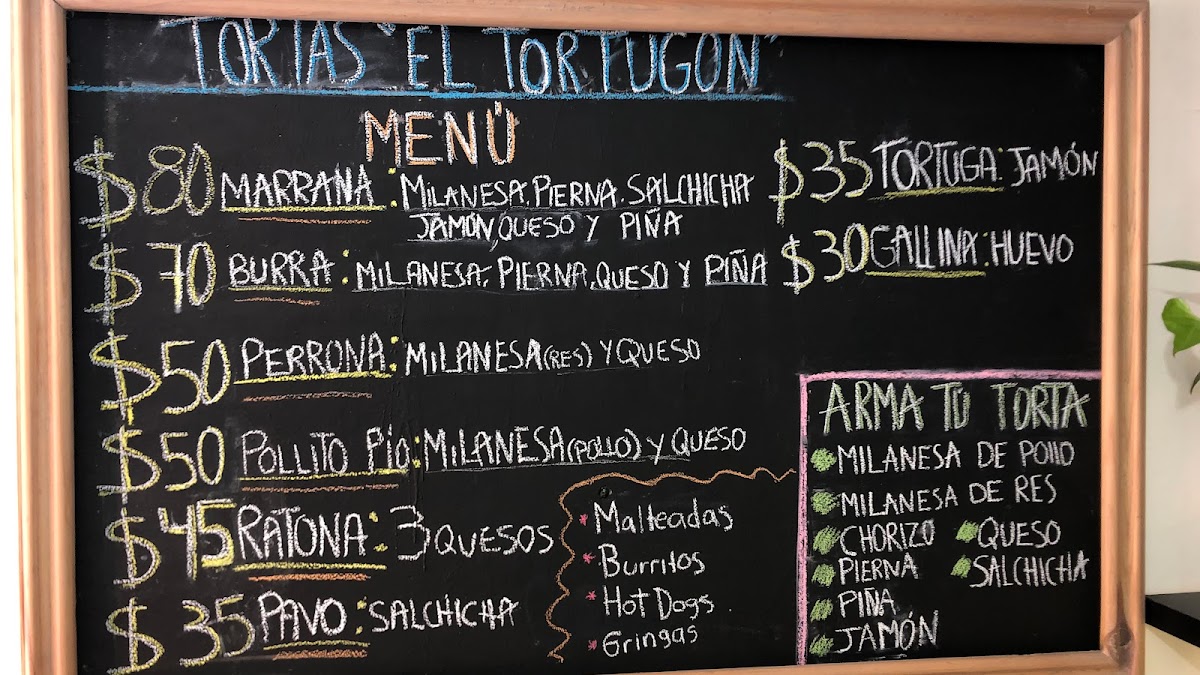 TORTAS "EL TORTUGON"
MENÚ
$80 MARRANA: MILANESA, PIERNA, SALCHICHA
JAMÓN, QUESO Y PIÑA
$70 BURRA: MILANESA, PIERNA, QUESO Y PIÑA
$50 PERRONA: MILANESA (RES) Y QUESO
$50 POLLITO PÍO: MILANESA (POLLO) Y QUESO
$45 RATONA: 3 QUESOS
$35 PAVO: SALCHICHA
$35 TORTUGA: JAMÓN
$30 GALLINA: HUEVO
* Malteadas
* Burritos
* Hot Dogs
* Gringas
ARMA TÚ TORTA
MILANESA DE POLLO
MILANESA DE RES
CHORIZO QUESO
PIERNA SALCHICHA
PIÑA
JAMÓN